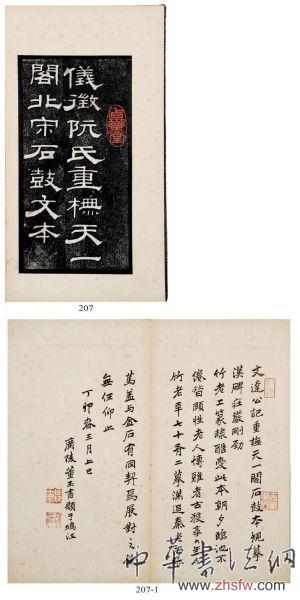 儀徵阮氏重橅天一
閣北宋石鼓文本
207
文達公記重橅天一閣石鼓本規摹
漢碑莊嚴剛勁
竹老工篆隸酷愛此本朝夕臨池不
倦皆頤性老人博雅者古
竹老年七十有二摹漢追秦老
篤蓋与金石有同契焉展對之
無任仰止
丁卯春三月上巳
廣陵董玉書題于鳩江
207-1
中華書法網
www.zhsfw.com